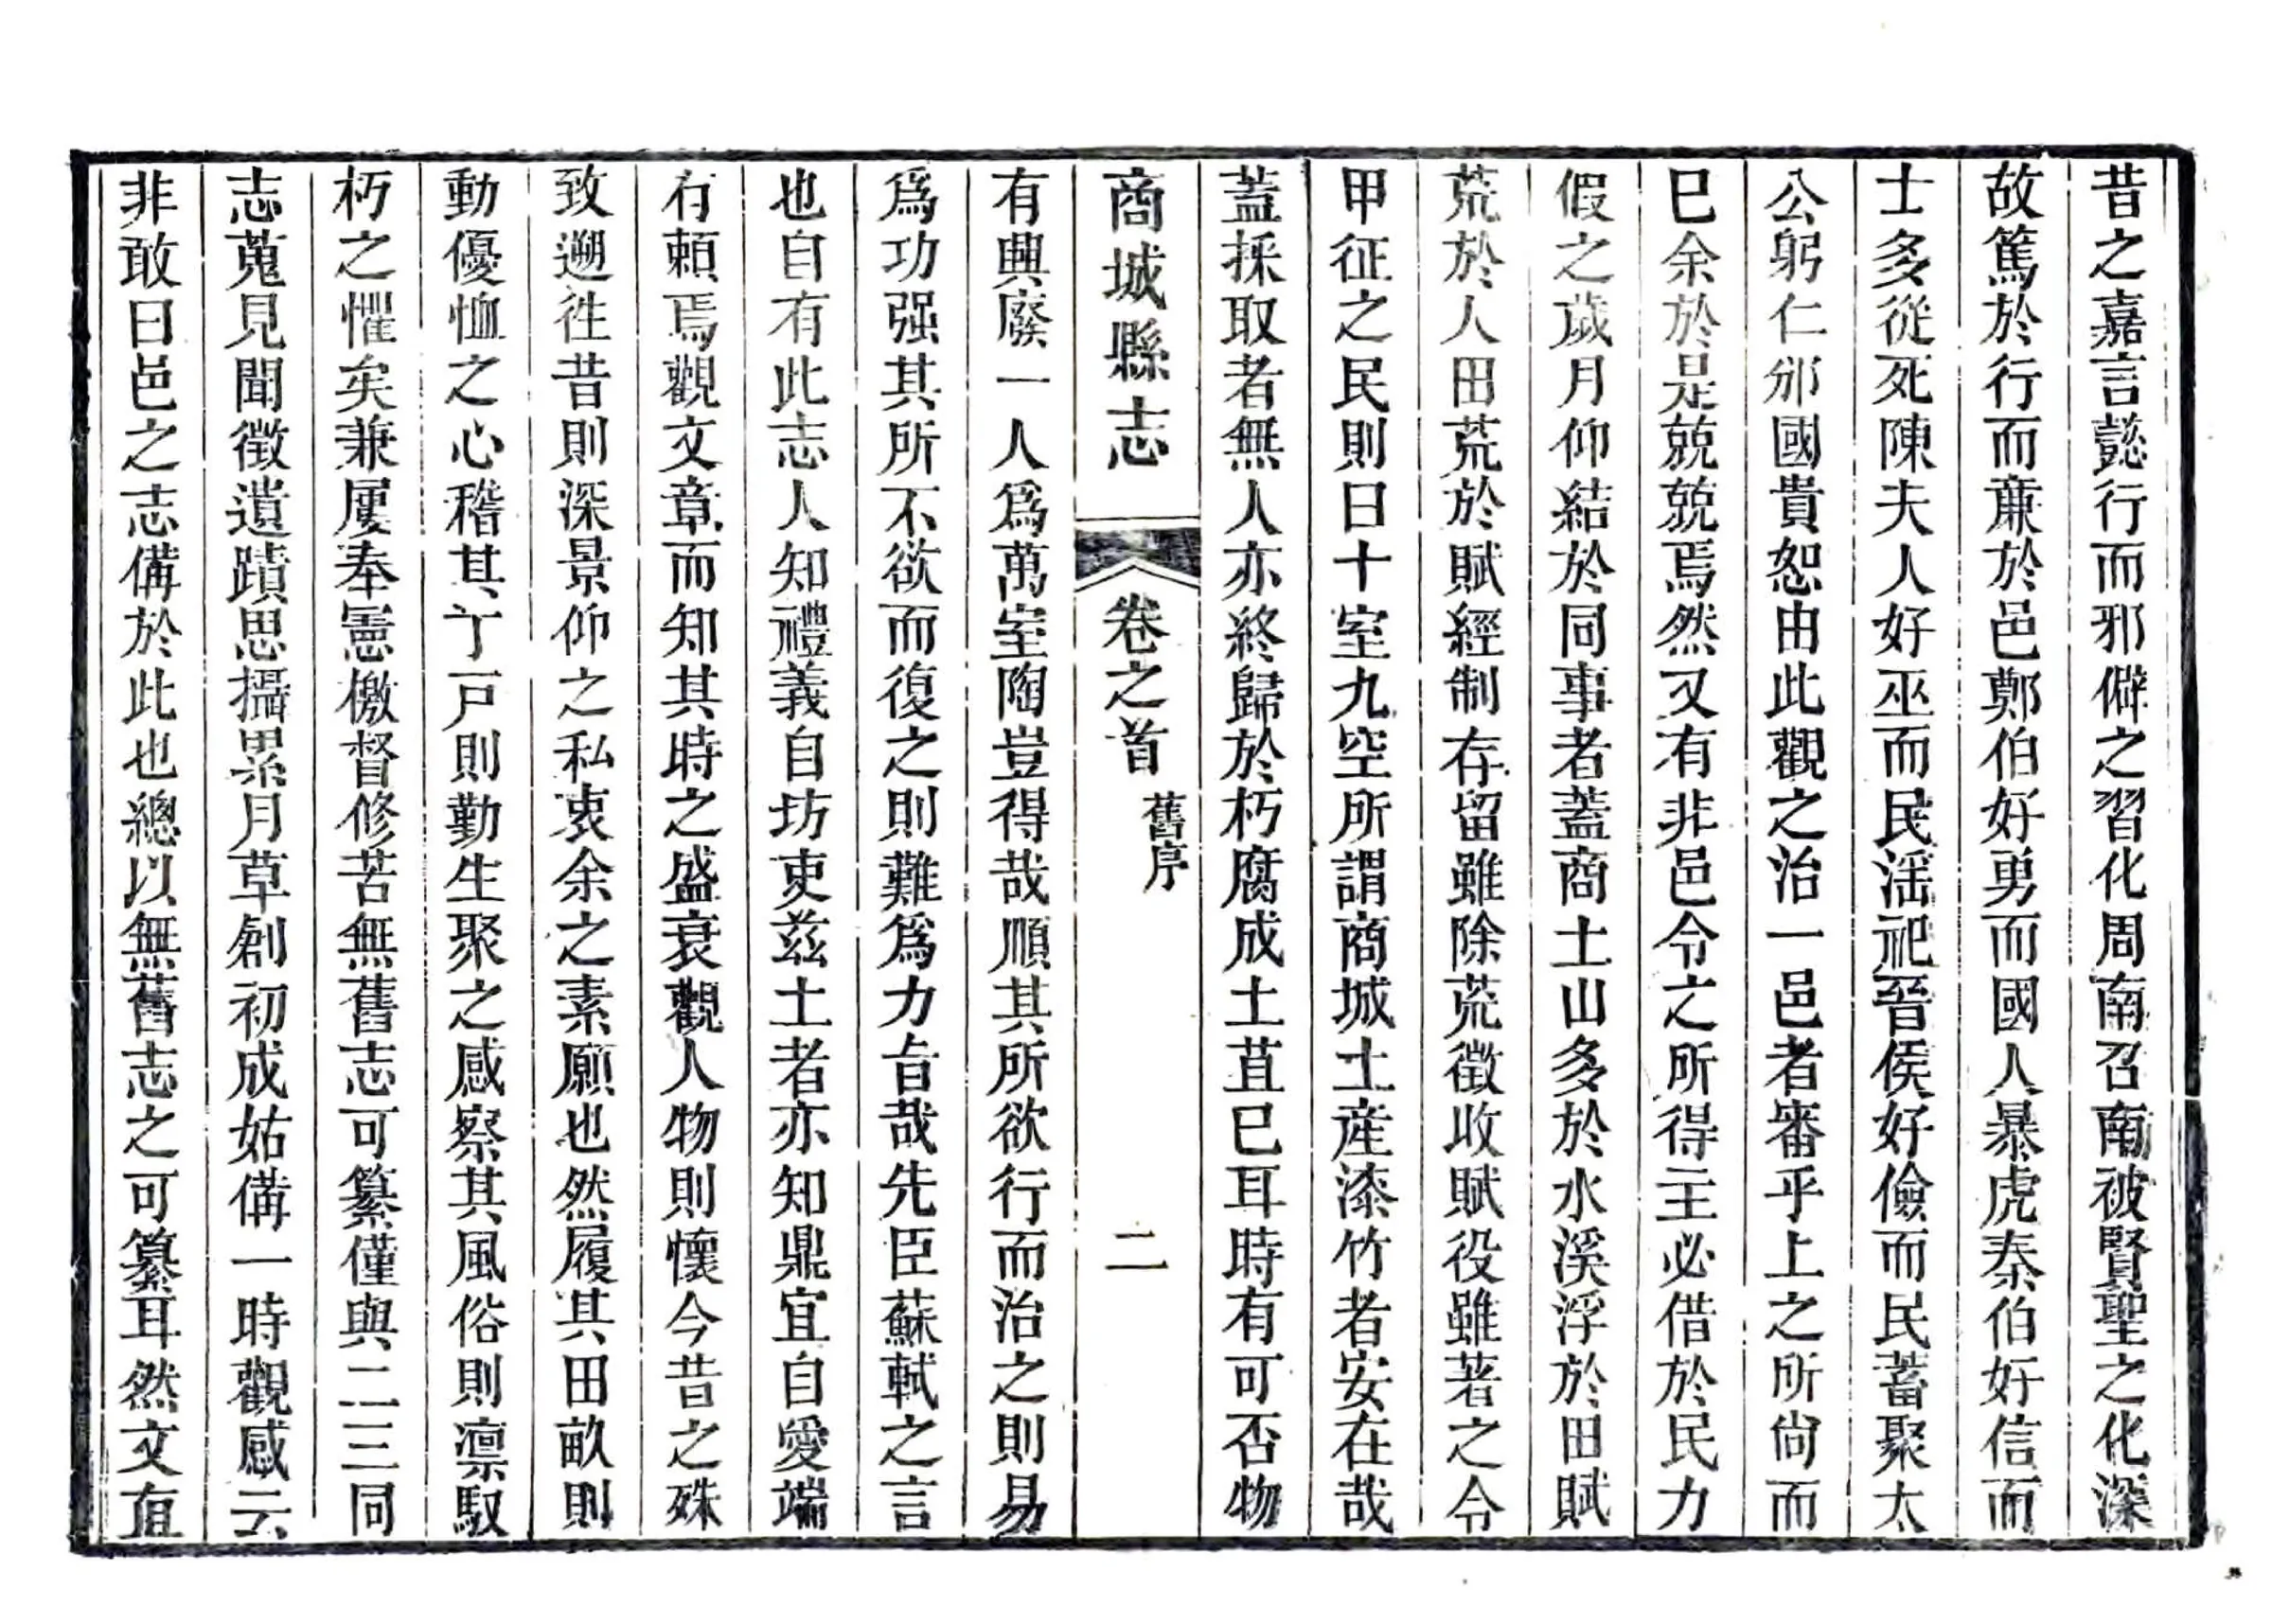 昔之嘉言懿行而邪僻之習化周南召南被賢聖之化深
故篤於行而亷於邑鄭伯好勇而國人暴虎秦伯好信而
士多從死陳夫人好巫而民滛祀晉侯好儉而民蓄聚太
公躬仁邠國貴恕由此觀之治一邑者審乎上之所尙而
巳余於是兢兢焉然又有非邑令之所得主必借於民力
假之歲月仰結於同事者蓋商土山多於水溪浮於田賦
荒於人田荒於賦經制存留雖除荒徵收賦役雖著之令
甲征之民則曰十室九空所謂商城土産漆竹者安在哉
蓋採取者無人亦終歸於朽腐成土苴巳耳時有可否物
商城縣志 卷之首 舊序 二
有興廢一人爲萬室陶豈得哉順其所欲行而治之則易
爲功强其所不欲而復之則難爲力旨哉先臣蘇軾之言
也自有此志人知禮義自坊吏兹土者亦知鼎宜自愛端
有頼焉觀文章而知其時之盛衰觀人物則懷今昔之殊
致遡徃昔則深景仰之私衷余之素願也然履其田畝則
動優恤之心稽其丁戸則勤生聚之感察其風俗則凛馭
朽之懼矣兼屢奉憲檄督修苦無舊志可纂僅與二三同
志蒐見聞徵遺蹟思攝累月草創初成姑備一時觀感云
非敢曰邑之志備於此也總以無舊志之可纂耳然文直